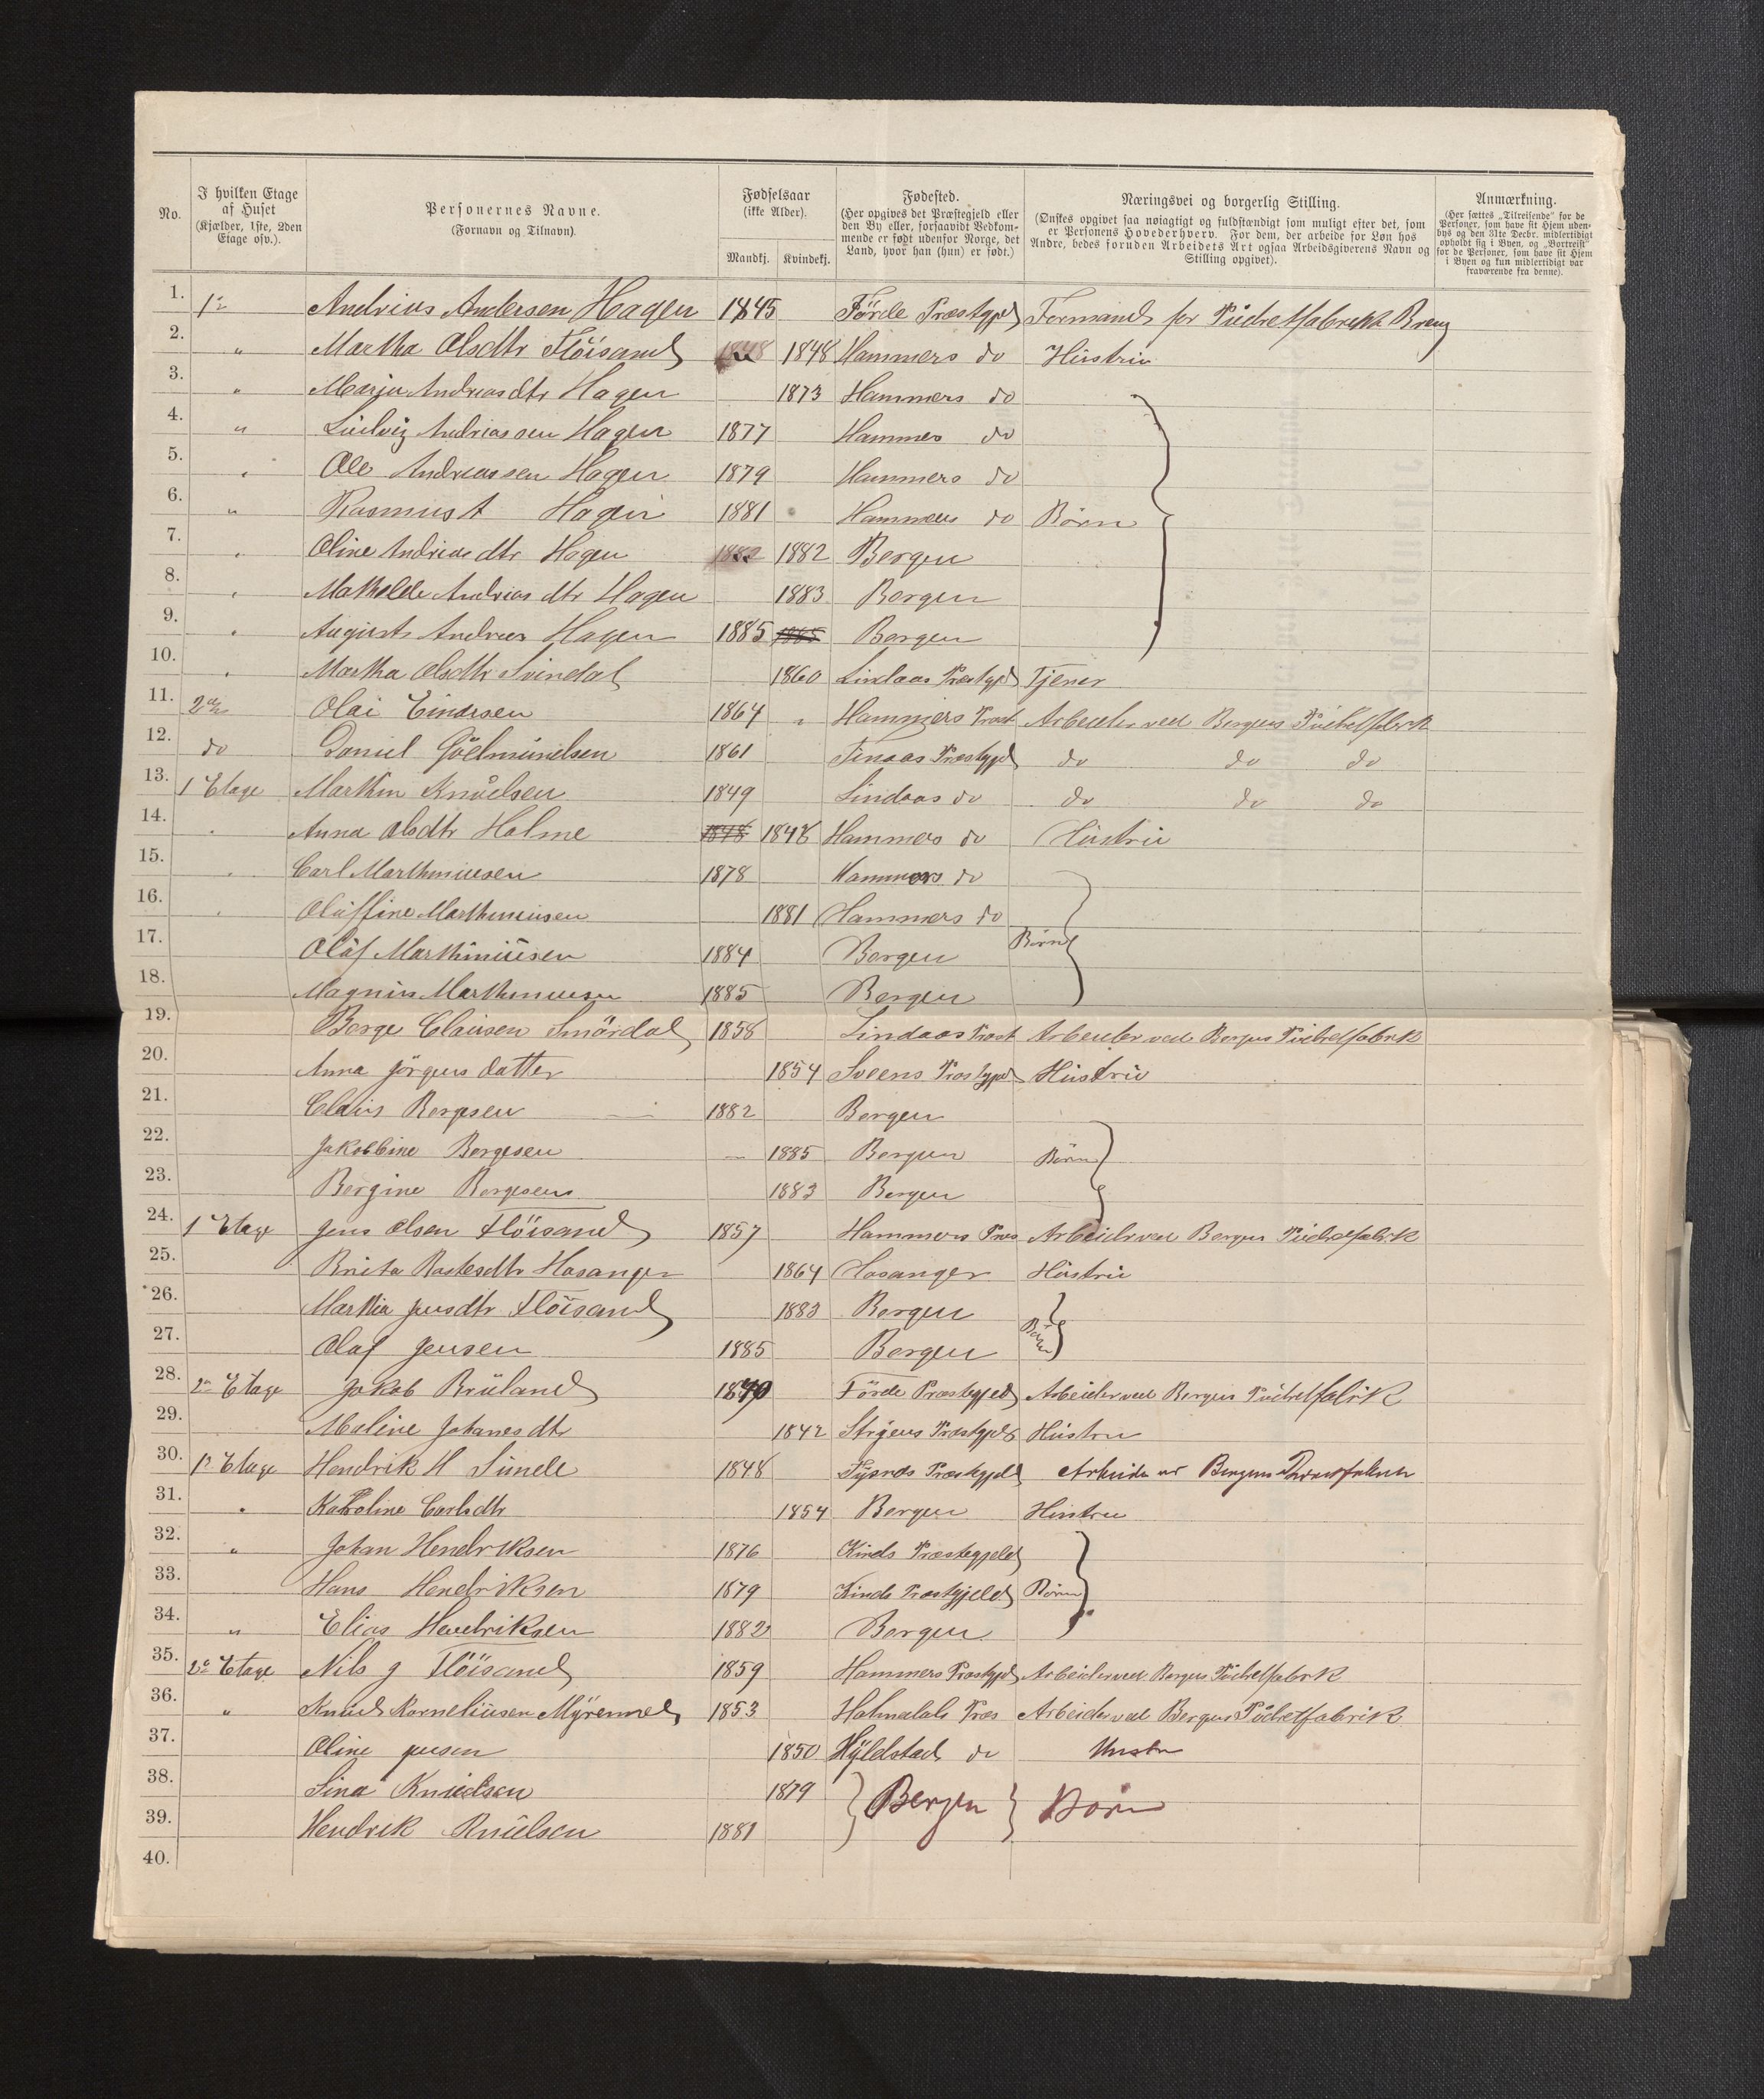 No.
I hvilken Etage
af Huset
(Kjælder, 1ste, 2den
Etage osv.).
Personernes Navne.
(Fornavn og Tilnavn).
Fødselsaar
(ikke Alder).
Mandkj. Kvindekj.
Fødested.
(Her opgives det Præstegjeld eller
den By eller, forsaavidt Vedkom-
mende er født udenfor Norge, det
Land, hvor han (hun) er født.)
Næringsvei og borgerlig Stilling.
(Ønskes opgivet saa nøiagtigt og fuldstændigt som muligt efter det, som
er Personens Hovederhverv. For dem, der arbeide for Løn hos
Andre, bedes foruden Arbeidets Art ogsaa Arbeidsgiverens Navn og
Stilling opgivet).
Anmærkning.
(Her sættes „Tilreisende" for de
Personer, som have sit Hjem uden-
bys og den 31te Decbr. midlertidigt
opholdt sig i Byen, og „Bortreist"
for de Personer, som have sit Hjem
i Byen og kun midlertidigt var
fraværende fra denne).
1. 1ē Andrias Andersen Hagen 1845 Förde Præstgjed Formand for Püdretfabrikk
2. " Martha Olsdtr Flöisand 1848 1848 Hammers do Hüstrü
3. " Andriasdtr Hagen 1873 Hammers do
4. " Lüdvig Andriassen Hagen 1877 Hammers do
5. " Ole Andreassen Hagen 1879 Hammers do
6. " Rasmus A Hagen 1881 Hammers do Börn
7. " Oline Andriasdtr Hagen 1882 1882 Bergen
8. " Mathelde Andriasdtr Hagen 1883 Bergen
9. " Augüst Andreas Hagen 1885 1885 Bergen
10. " Martha Olsdtr 1860 Lindaas Præstgjd Tjener
11. Olai Eindesen 1864 " Hammers Præst Arbeider ved Bergens Püdretfabrik
12. do Daniel 1861 Præstgjd do do do
13. 1 Etage Marthin Knüdsen 1849 Lindaas do do do do
14. " Anna Olsdtr Holme 1848 1848 Hammers do Hüstrü
15. " Carl Marthiniusen 1878 Hammers do
16. " Olüffine Marthiniusen 1881 Hammers do
17. Olüf Marthiniüsen 1884 Bergen Börn
18. Magnüs Marthiniusen 1885 Bergen
19. Berge Claüsen Smördal 1858 Lindaas Præst Arbeider ved Bergens Püdretfabrik
20. Anna Jörgensdatter 1854 Sveens Præstgjed Hüstrü
21. Claüs Bergesen 1882 Bergen
22. Jakobbine Bergesen 1885 Bergen Börn
23. Bergine Bergesen 1883 Bergen
24. 1 Etage Jens Olsen Flöisand 1857 Hammers Præs Arbeider ved Bergens Püdretfabrik
25. Brita Hosanger 1864 Hosanger Hüstrü
26. Jensdtr Flöisand 1883 Bergen
27. Olaf Jensen 1885 Bergen Börn
28. 2ē Etage Jakob Brüland 1840 Förde Præstegjeld Arbeider ved Bergens Püdretfabrik
29. Maline Johanesdtr 1842 Præstgjeld Hüstrü
30. 1ē Etage Hendrik H 1848 Præstgjeld Arbeider ved Bergens
31. " Karoline Carlsdtr 1854 Bergen Hüstrü
32. " Johan Hendriksen 1876 Kinds Præstegjeld
33. Hans Hendriksen 1879 Kinds Præstgjeld Börn
34. " Elias Hendriksen 1882 Bergen
35. 2ē Etage Nils J Flöisand 1859 Hammers Præstgjd Arbeider ved Bergens Püdretfabrik
36. " Knüd Korneliüsen 1853 Holmedals Præs Arbeider ved Bergens Püdretfabrik
37. Oline Jensen 1850 Hÿldstad do Hustru
38. Sina Knüdsen 1879 Bergen Börn
39. Hendrik Knüdsen 1881
40.